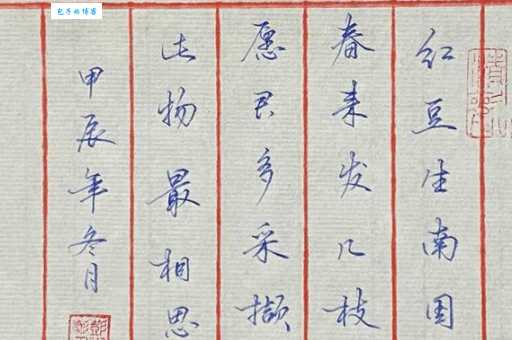 红豆生南国
春来发几枝
愿君多采撷
此物最相思
甲辰年冬月